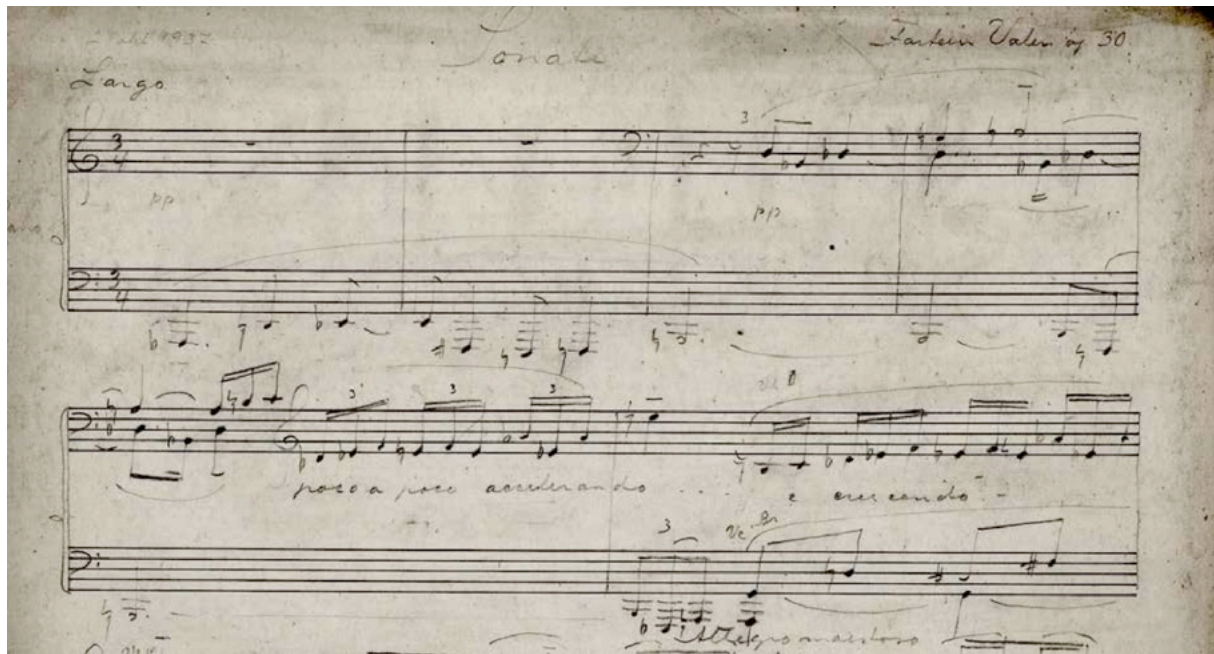 Sonate
Fartein Valen op 30
Largo
3
4
3
pp
pp
3
4
3
3
3
poco a poco accelerando . . . . e crescendo -
3
Allegro maestoso